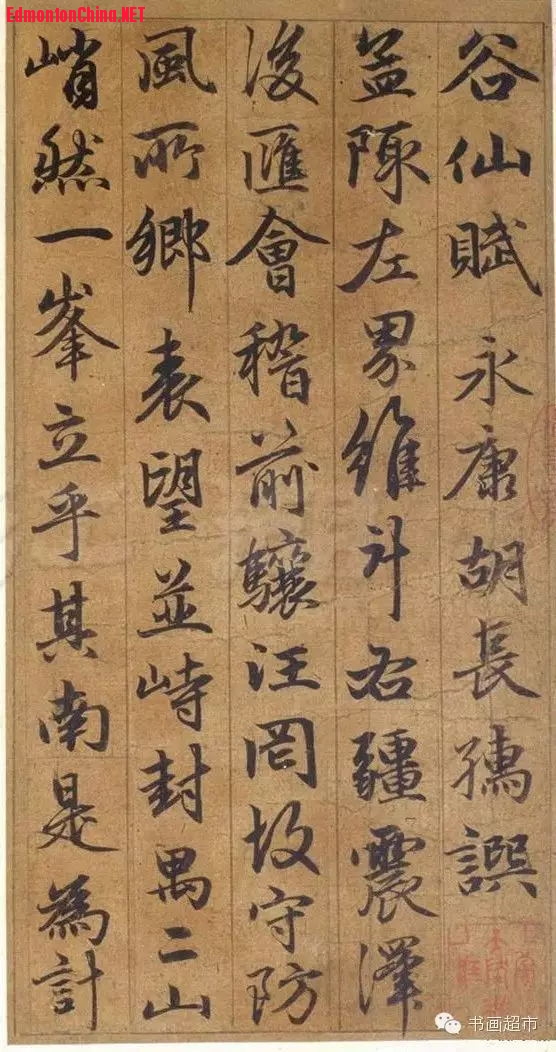 EdmontonChina.NET
谷仙賦 永康胡長孺譔
益陳左界維斗右疆震澤
後匯會稽前驤汪罔故守防
風所鄉表望並峙封禺二山
峭然一峯立乎其南是為計
书画超市